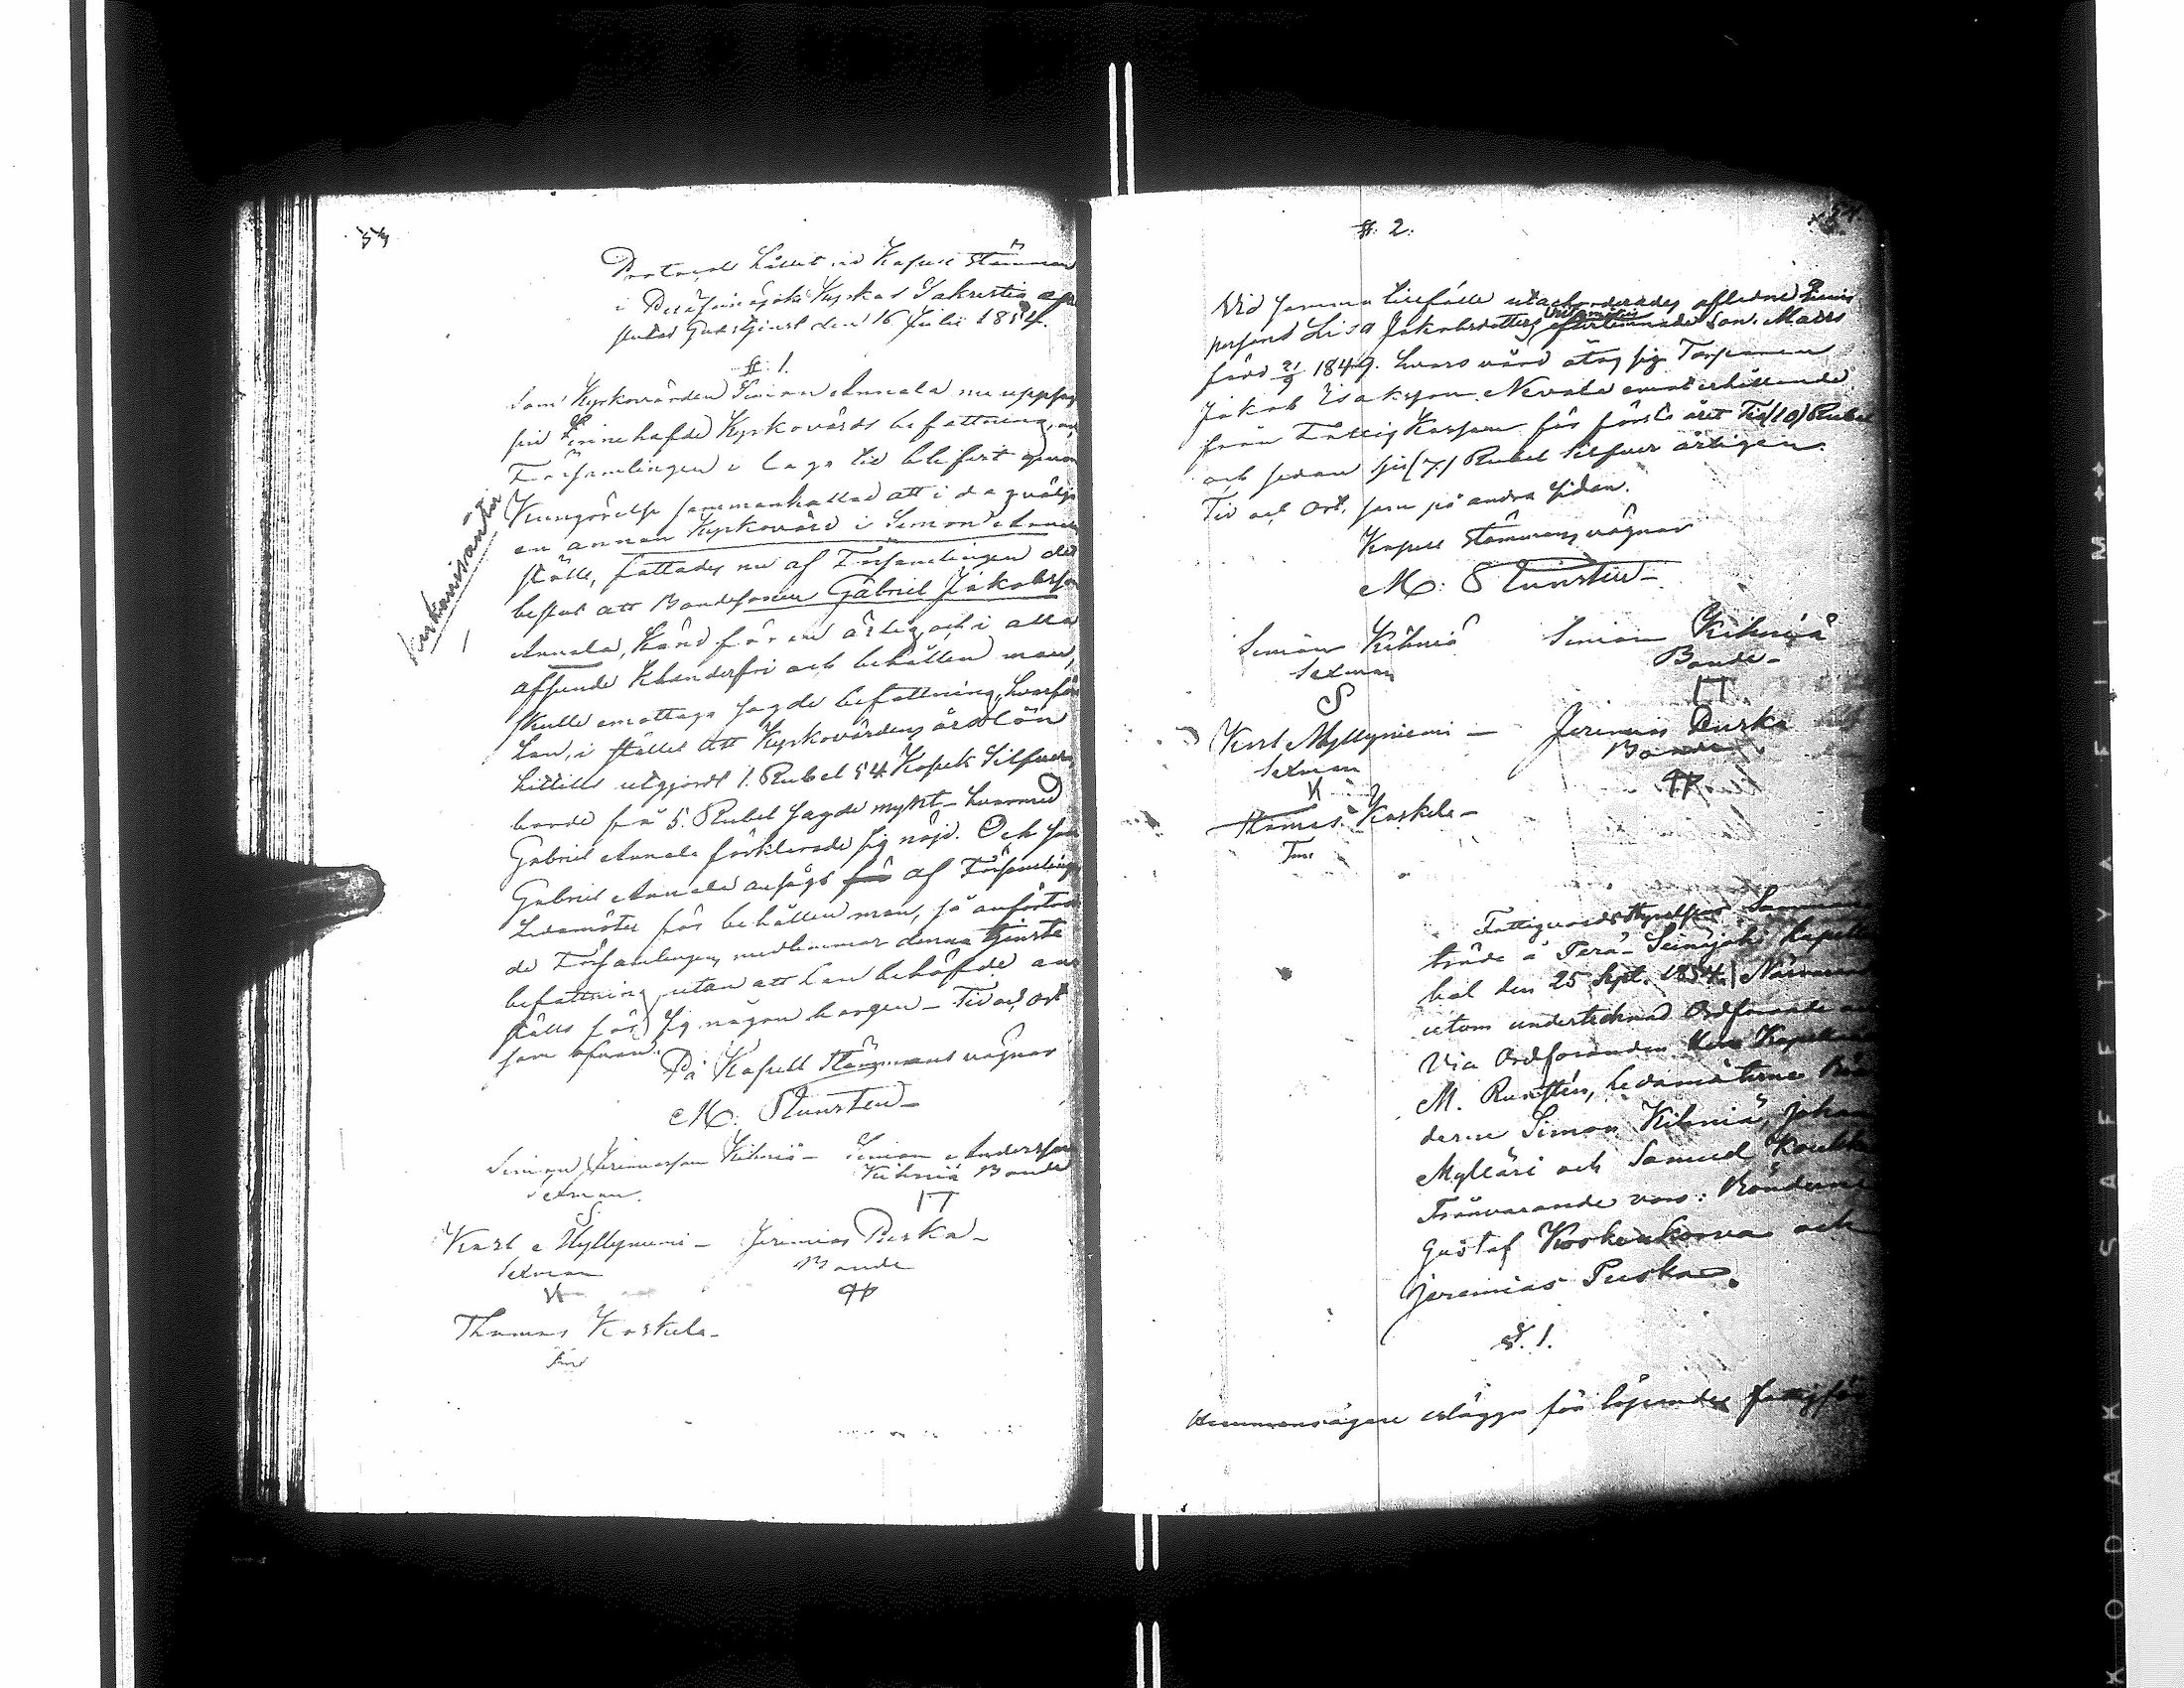 54
Protocoll hållet vid Kapell Stämman
i Peräseinäjoki Kyrkas Sakristia
slutad Gudstjenst den 16 Julii 1854.
§. 1.
Som Kyrkovärden Simon Annala nu uppsag
sin innehafde Kyrkovärds befattning,
Församlingen i laga tid blifvit genom
Kungörelse sammankallad att i dag välja
en annan Kyrkovärd i Simon Annala
ställe, fattades nu af Församlingen det
beslut att Bondesonen Gabriel Jakobsson
Annala, känd för en ärlig och i alla
afseende klanderfri och behållen man,
skulle emottaga sagde befattning, hvarför
han, i stället att Kyrkovärdens årslön
hittills utgjort 1. Rubel 54 Kopek Silfver,
borde få 5. Rubel sagde mynt – hvarmed
Gabriel Annala förklarade sig nöjd. Och som
Gabriel Annala ansågs af Församlings
Ledamöter för behållen man, så anförtrod
de Församlingens medlemmar denna tjenste
befattning utan att han behöfde
ställa för sig någon borgen – Tid och Ort
som ofvan.
På Kapell Stämmans vägnar
M. Runsten –
Kirkonisäntä
Simon Jeremiasson Kihniä – Simon Andersson
Sexman. Kihniä Bonde
S
Karl Myllyniemi – Jeremias Puska –
Sexman Bonde
K
Thomas Koskela –
§. 2.
54.
Vid samma tillfälle utackorderades aflidne
person Lisa Jakobsdotters efterlemnade Son. Matts
född 21/9 1849. hvars vård åtog sig Torparen
Jakob Isaksson Nevala emot erhållande
från Fattig Kassan för första året Tio (10) Rubel
och sedan sju (7.) Rubel Silfver årligen.
Tid och Ort, som på andra sidan.
Kapell Stämmans vägnar
M. Runsten –
Simon Kihniä Simon Kihniä
Sexman Bonde –
S
Karl Myllyniemi – Jeremias Puska
Sexman Bonde
K
Thomas Koskela –
Fattigvårds Styrelsens Samman
träde å Perä-Seinäjoki Kapells
bol den 25 Sept. 1854. Närvarande
utom undertecknad Ordförande
Vice Ordföranden Kapellan
M. Runstén, Ledamöterne Bön
derne Simon Kihniä, Johan
Mylläri och Samuel Koukka
Frånvarande voro: Bönderne
Gustaf Koskenkorva och
Jeremias Puska.
§. 1.
Hemmansägare erlägga för löpande fattigför
KODAK SAFETY FILM